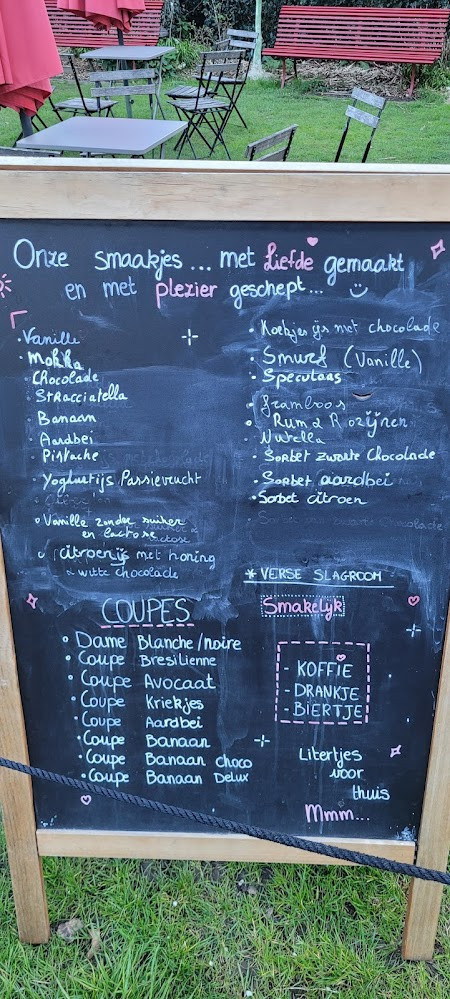 Onze smaakjes... met liefde gemaakt
en met plezier geschept...
Vanille
Mokka
Chocolade
Stracciatella
Banaan
Aardbei
Pistache
Yoghurtijs Passievrucht
Vanille zonder suiker
en lactose
citroenijs met honing
witte chocolade
Koekjes ijs met chocolade
Smurf (Vanille)
Speculaas
framboos
Rum & Rozijnen
Nutella
Sorbet zwarte Chocolade
Sorbet aardbei
Sorbet citroen
* VERSE SLAGROOM
Smakelijk
COUPES
Dame Blanche/noire
Coupe Bresilienne
Coupe Avocaat
Coupe Kriekjes
Coupe Aardbei
Coupe Banaan
Coupe Banaan choco
Coupe Banaan Delux
- KOFFIE
- DRANKJE
- BIERTJE
Litertjes
voor
thuis
Mmm...